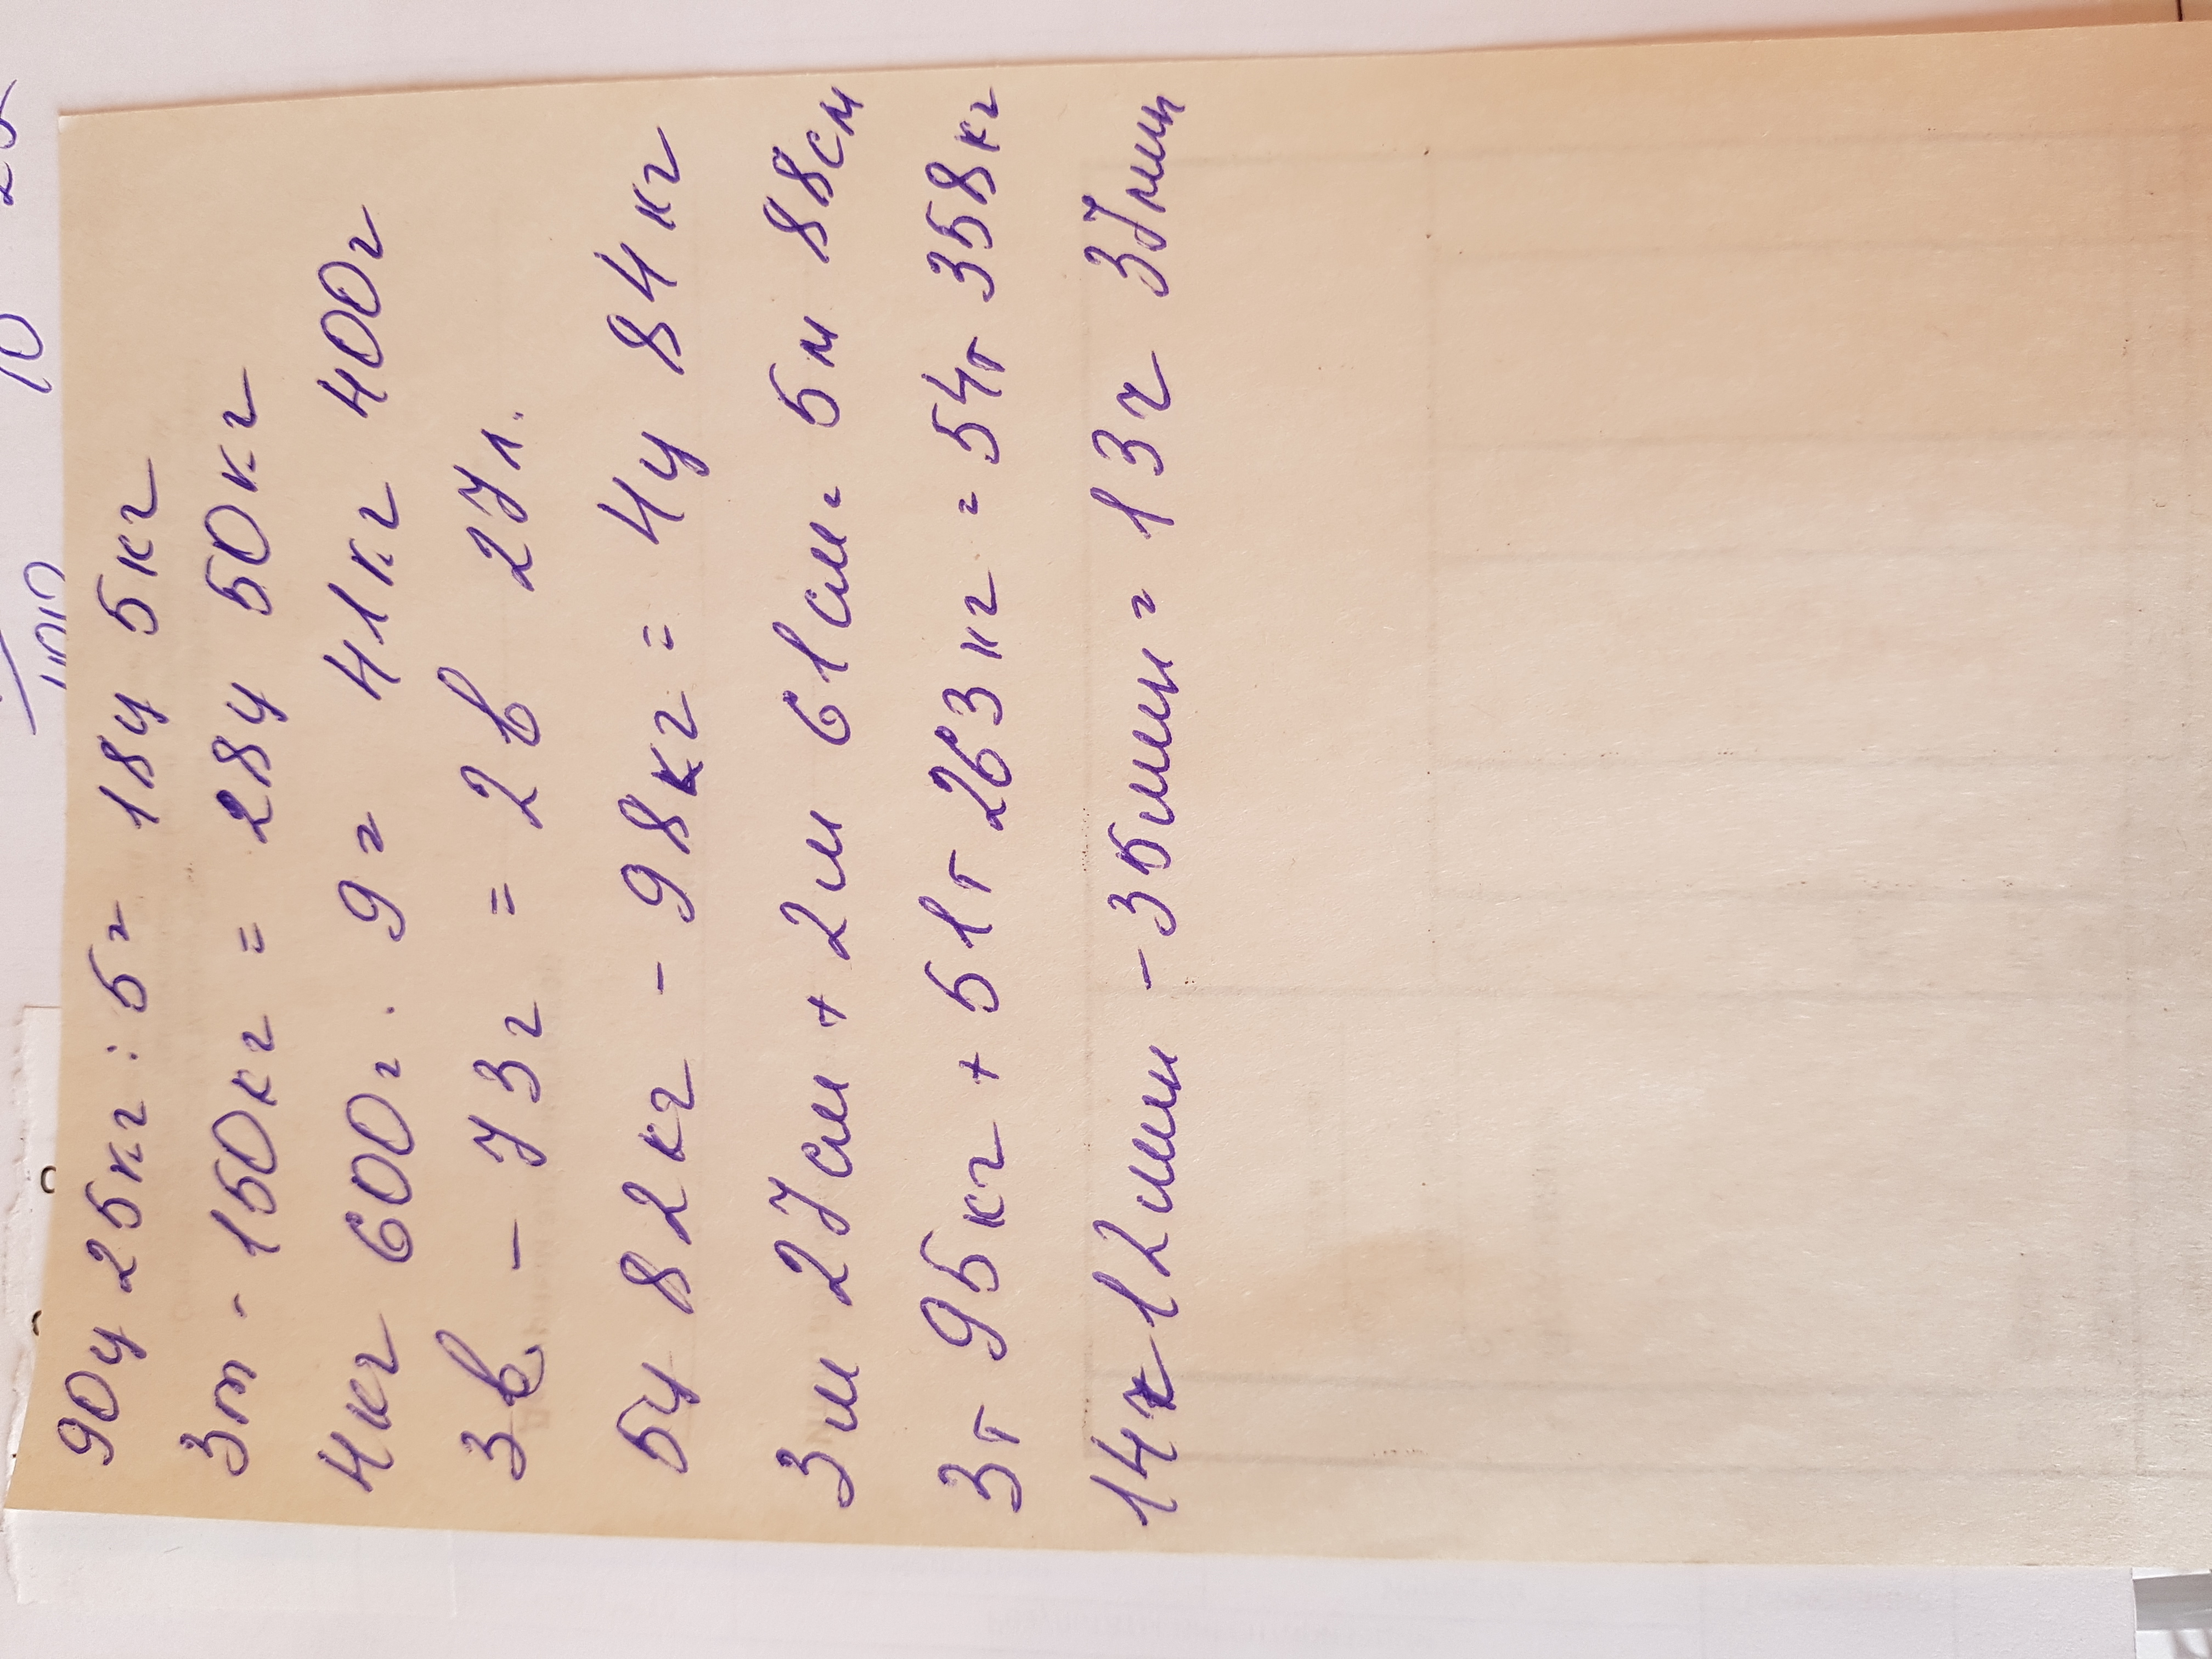 90ц 25кг : 5 = 18ц 5кг
3т - 150кг = 28ц 50кг
4кг 600г · 9 = 41кг 400г
3в. - 73г = 2в 27л.
5ц 82кг - 98кг = 4ц 84кг
3м 27см + 2м 61см = 5м 88см
3т 95кг + 51т 263кг = 54т 358кг
14ч 12мин - 35мин = 13ч 37мин